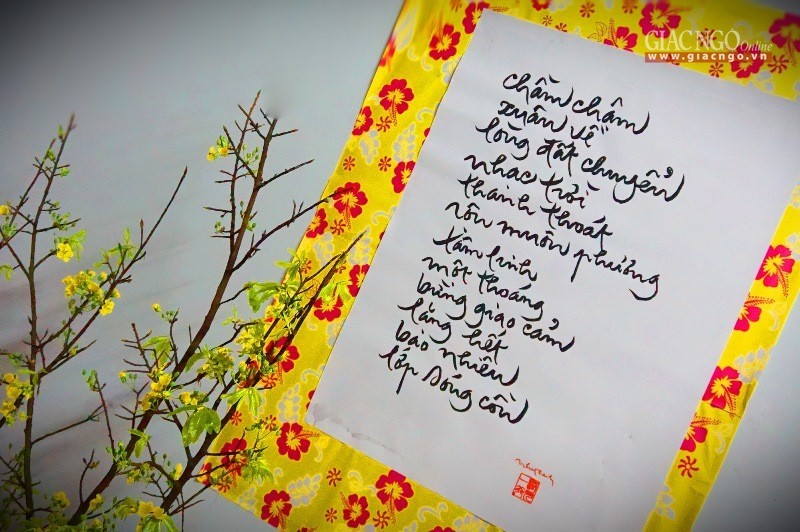 GIACNGO Online
www.giacngo.vn
chầm chậm
xuân về
lòng đất chuyển
nhạc trời
thánh thoát
rộn muôn phương
tâm linh
một thoáng
bừng giao cảm
lắng hết
bao nhiêu
lớp sóng cồn